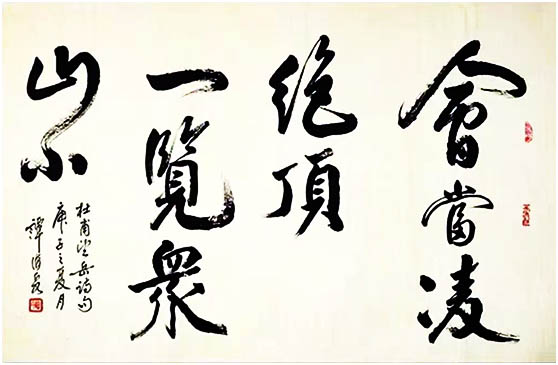 會當凌
絕頂
一覽衆
山小
杜甫望岳詩句
庚子之夏月
譚